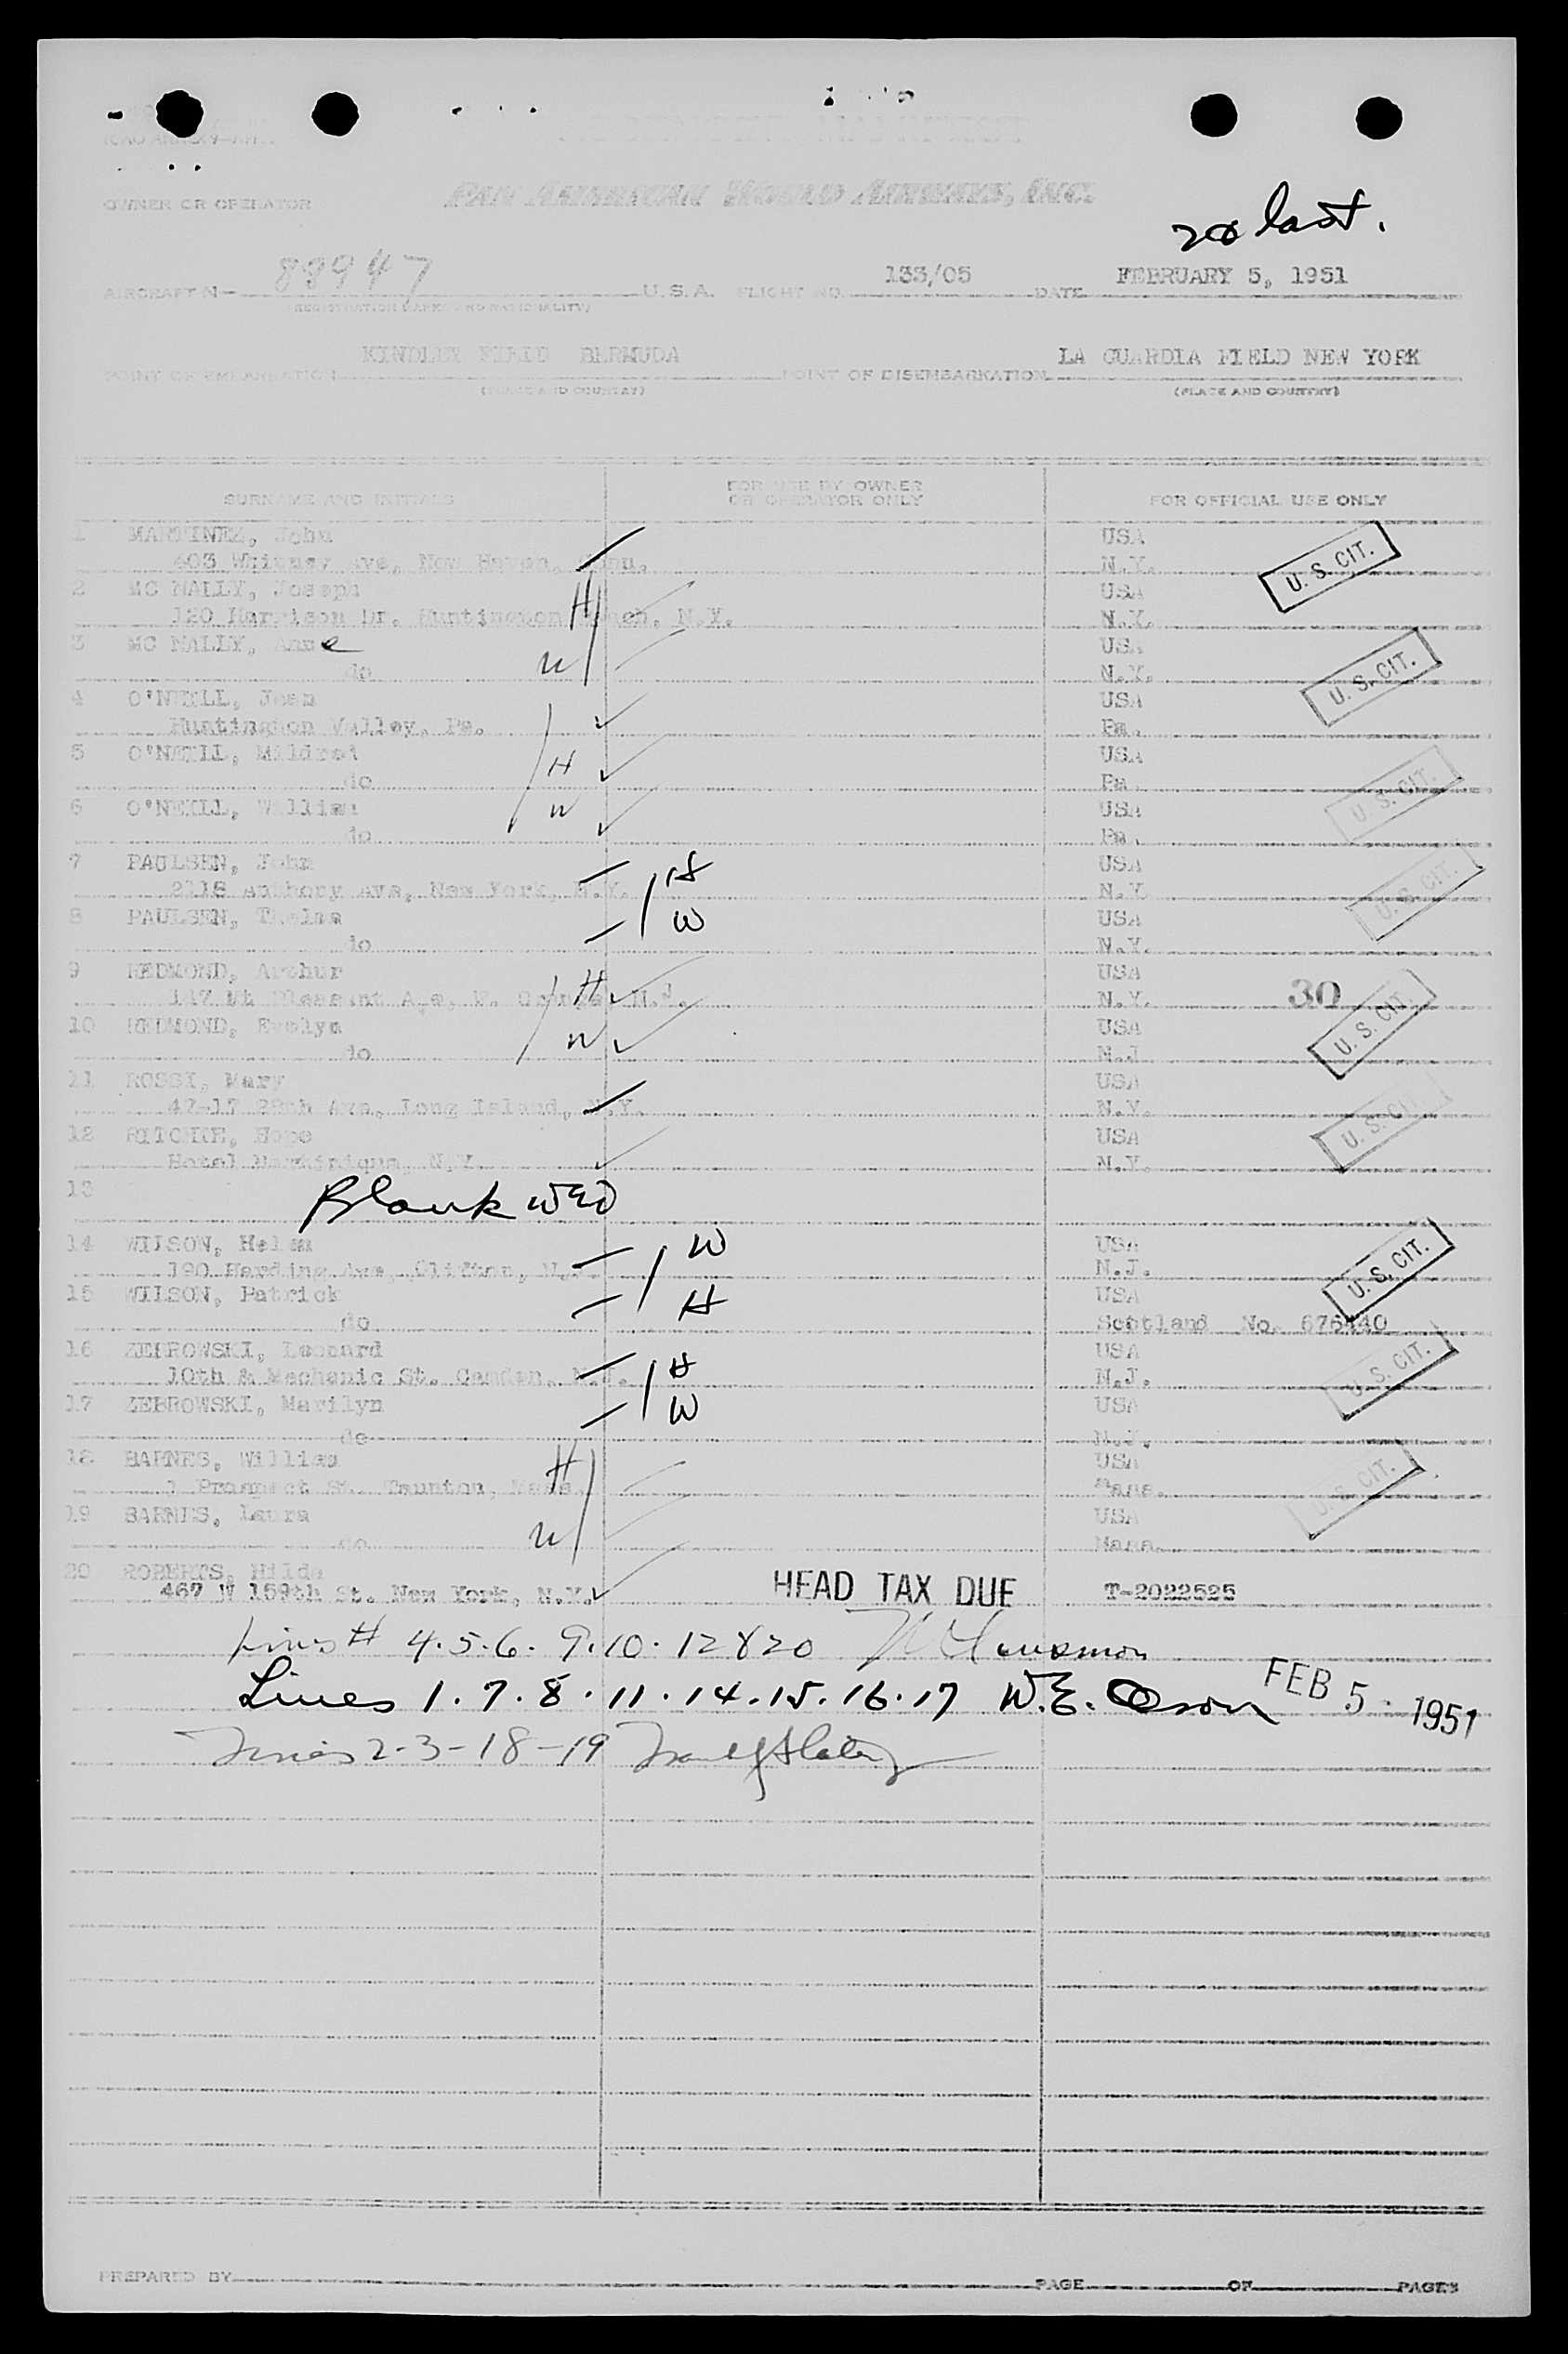 ICAO ANNEX 9—
OWNER OR OPERATOR PAN AMERICAN WORLD AIRWAYS, INC.
20 last.
AIRCRAFT N— 88947 U.S.A. FLIGHT NO. 133/05 DATE FEBRUARY 5, 1951
(REGISTRATION MARKS AND NATIONALITY)
POINT OF EMBARKATION KINDLEY FIELD BERMUDA POINT OF DISEMBARKATION LA GUARDIA FIELD NEW YORK
(PLACE AND COUNTRY) (PLACE AND COUNTRY)
SURNAME AND INITIALS FOR USE BY OWNER OR OPERATOR ONLY FOR OFFICIAL USE ONLY
1 MARTINEZ, John USA
403 Whitney Ave, New Haven, Conn. N.Y. U. S. CIT.
2 MC NALLY, Joseph H USA
120 Harrison Dr. Huntington Beach, N.Y. N.Y.
3 MC NALLY, Anne W USA
do N.Y. U. S. CIT.
4 O'NEILL, Jean USA
Huntingdon Valley, Pa. Pa.
5 O'NEILL, Mildred H USA
do Pa. U. S. CIT.
6 O'NEILL, William W USA
do Pa.
7 PAULSEN, John H USA
2118 Anthony Ave, New York, N.Y. N.Y. U. S. CIT.
8 PAULSEN, Thelma W USA
do N.Y.
9 REDMOND, Arthur H USA
147 Mt Pleasant Ave, W. Orange, N.J. N.Y. 30
10 REDMOND, Evelyn W USA U. S. CIT.
do N.J.
11 ROSSI, Mary USA
Ave, Long Island, N.Y. N.Y. U. S. CIT.
12 RITCHIE, Hope USA
Hotel Martinique, N.Y. N.Y.
13 Blank WEO
14 WILSON, Helen W USA
190 Harding Ave, Clifton, N.J. N.J. U. S. CIT.
15 WILSON, Patrick H USA
do Scotland No. 676440
16 ZEBROWSKI, Leonard H USA
10th & Mechanic St. Camden, N.J. N.J. U. S. CIT.
17 ZEBROWSKI, Marilyn W USA
do N.J.
18 BARNES, William H USA
1 Prospect St. Taunton, Mass. Mass. U. S. CIT.
19 BARNES, Laura W USA
do Mass.
20 ROBERTS, Hilda
467 W 159th St. New York, N.Y. HEAD TAX DUE T-2022525
Lines # 4.5.6. 9.10.12 & 20
Lines 1.7.8.11.14.15.16.17 W.E. Olson FEB 5 - 1951
Lines 2-3-18-19
PREPARED BY PAGE OF PAGES